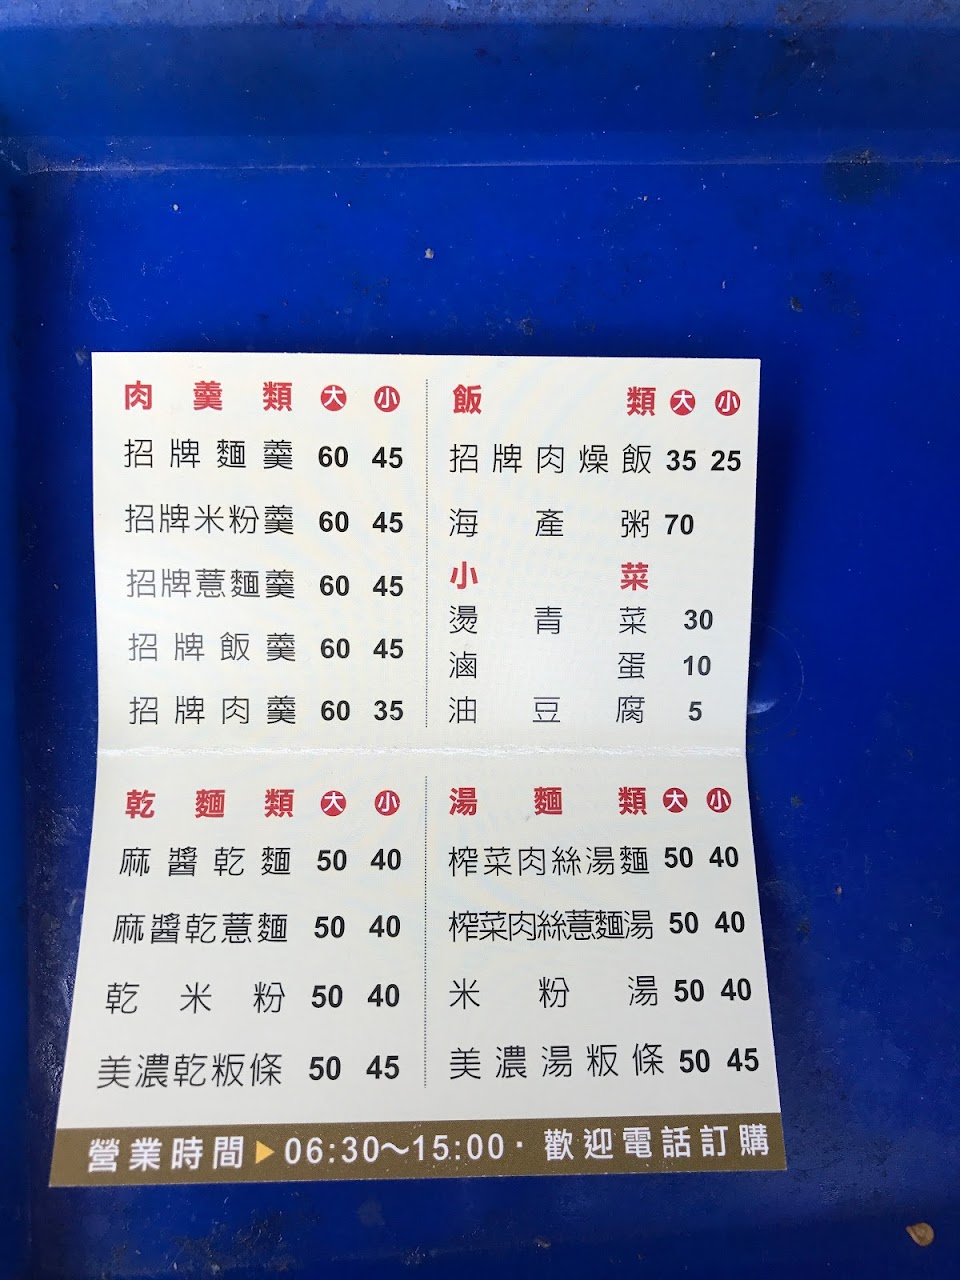 肉羹類 大 小
招牌麵羹 60 45
招牌米粉羹 60 45
招牌薏麵羹 60 45
招牌飯羹 60 45
招牌肉羹 60 35
飯類 大 小
招牌肉燥飯 35 25
海產粥 70
小菜
燙青菜 30
滷蛋 10
油豆腐 5
乾麵類 大 小
麻醬乾麵 50 40
麻醬乾薏麵 50 40
乾米粉 50 40
美濃乾粄條 50 45
湯麵類 大 小
榨菜肉絲湯麵 50 40
榨菜肉絲薏麵湯 50 40
米粉湯 50 40
美濃湯粄條 50 45
營業時間▶06:30～15:00·歡迎電話訂購